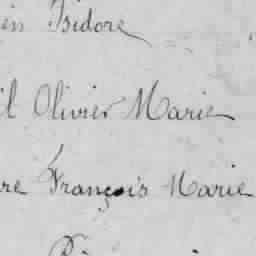 en Isidore
il Olivier Marie
re François Marie